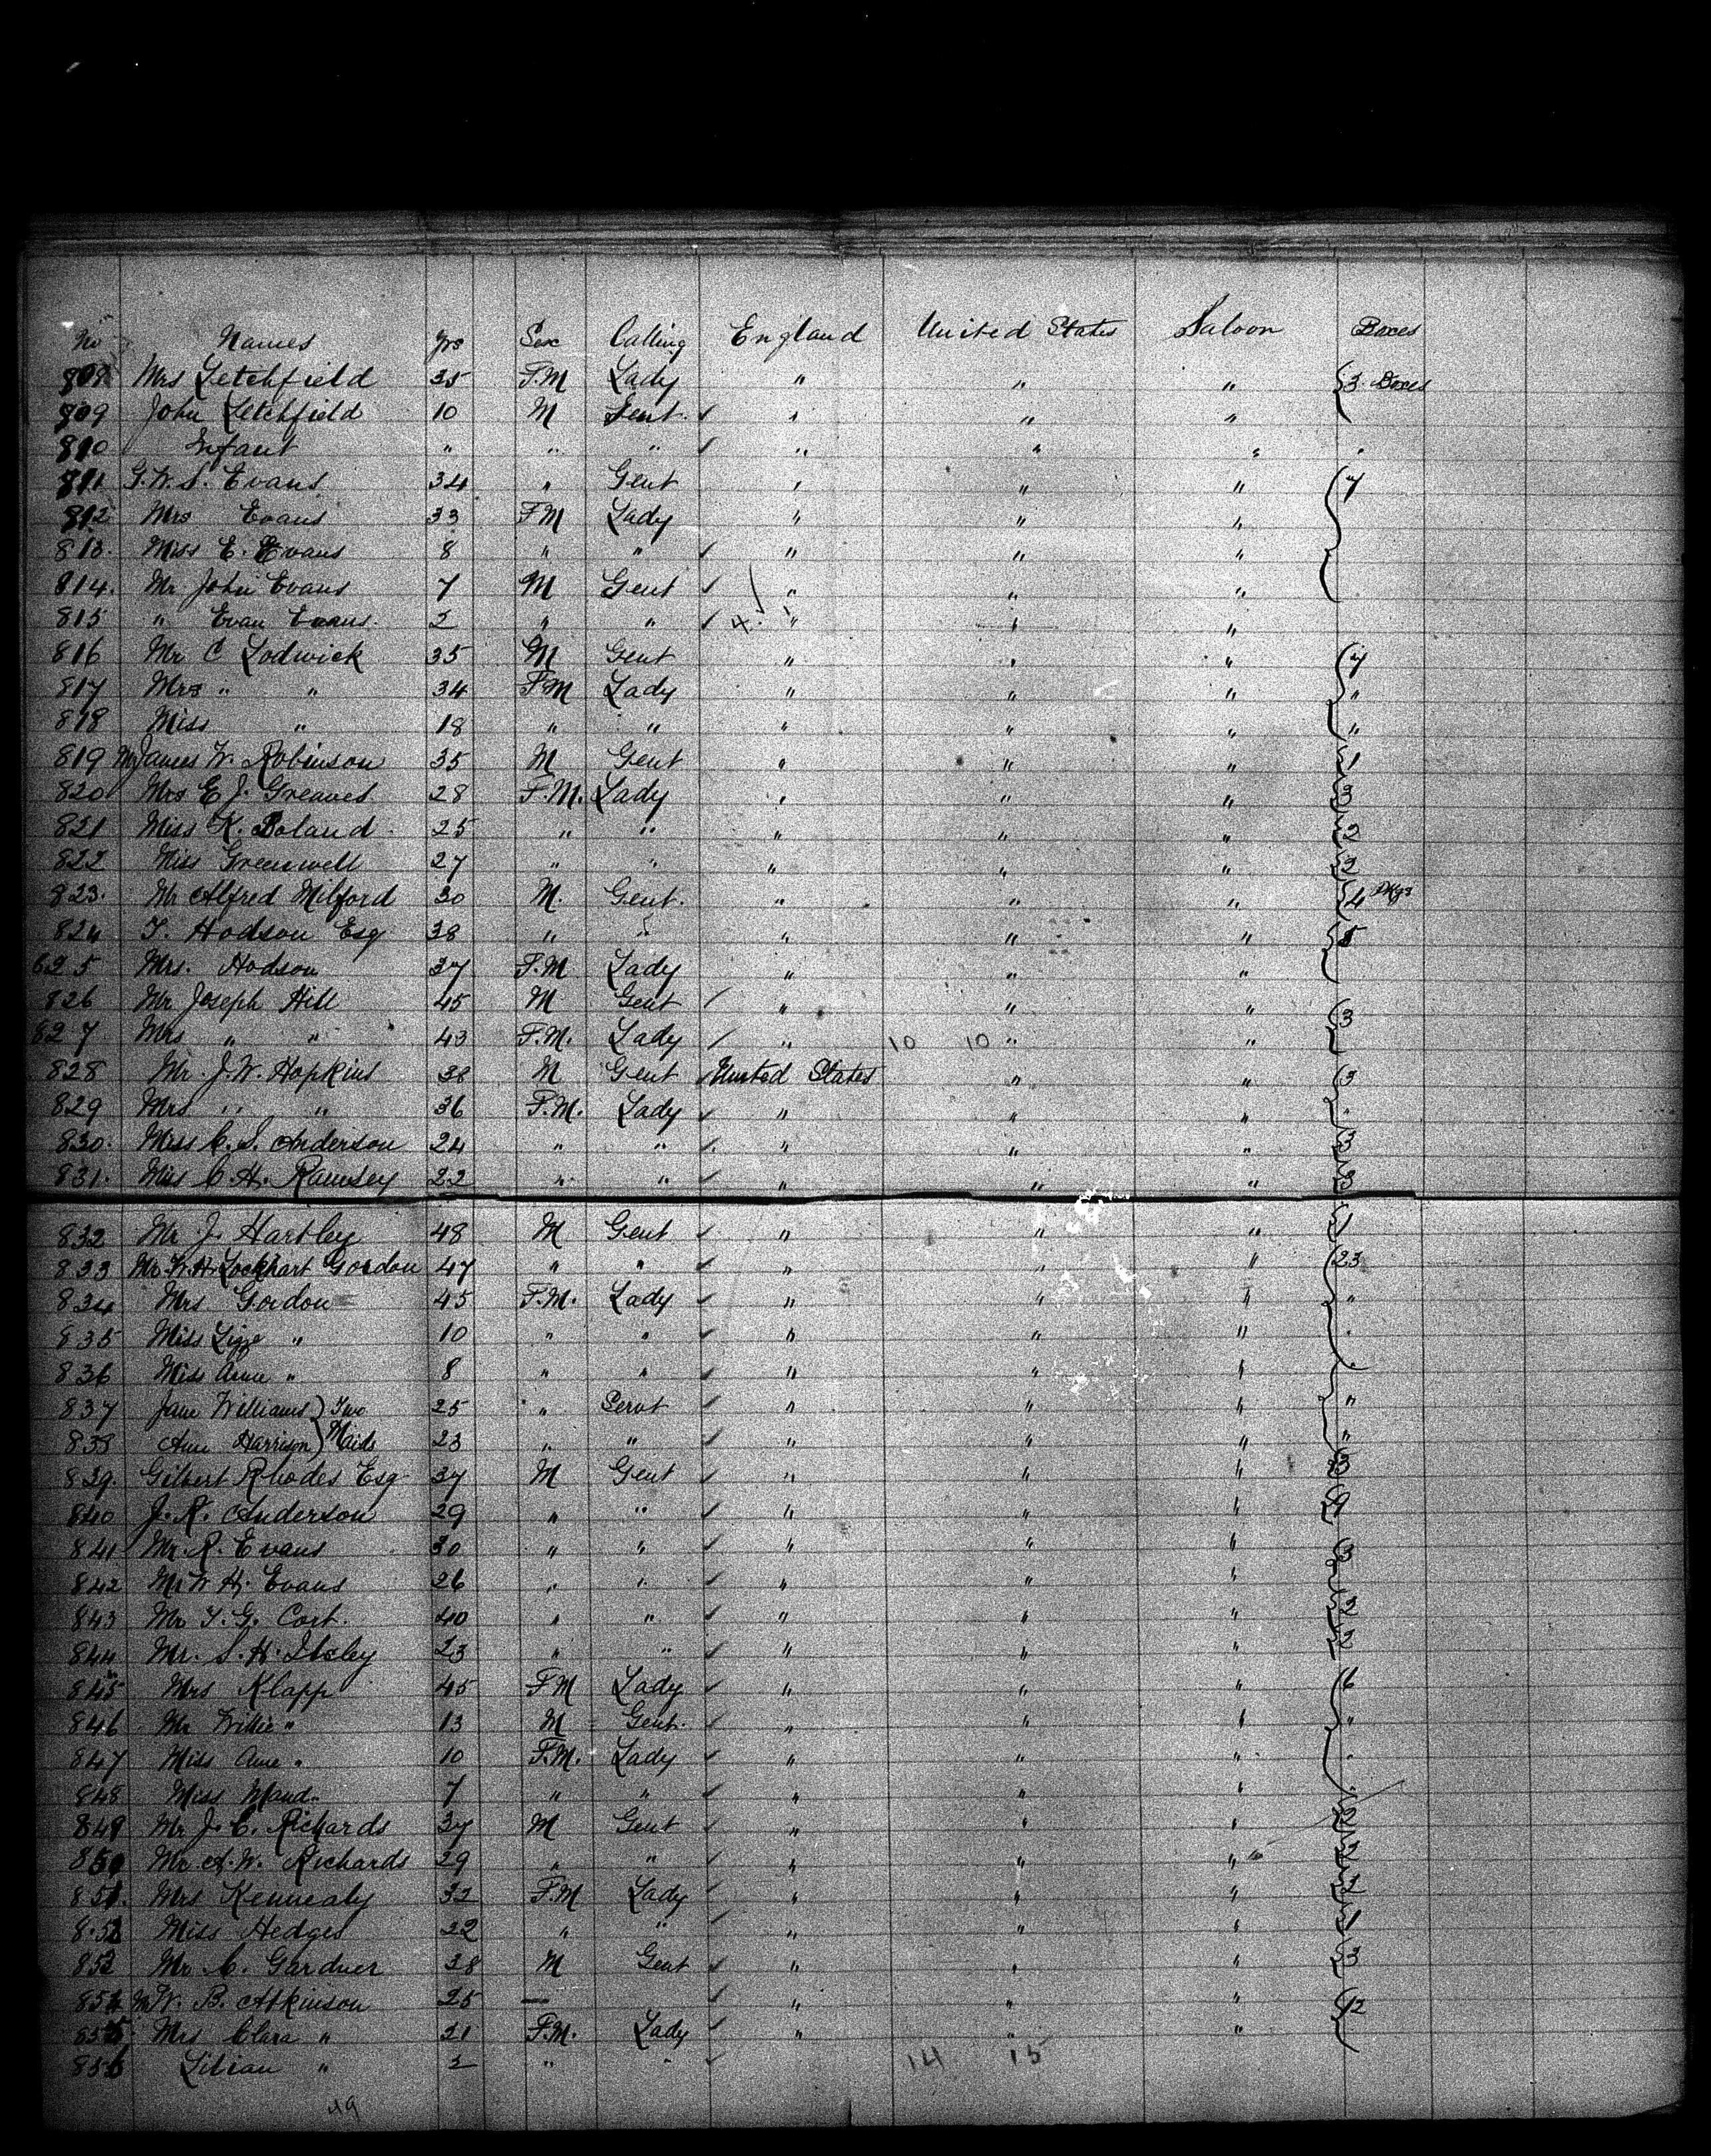 No Names yrs Sex Calling England United States Saloon Boxes
808 Mrs Letchfield 35 F.M Lady " " " 3 Boxes
809 John Letchfield 10 M Gent. " " "
810 Infant " " " " " " "
811 G.W.S. Evans 34 " Gent " " " 7
812 Mrs Evans 33 FM Lady " " "
813. Miss E. Evans 8 " " " " "
814. Mr John Evans 7 M Gent " " "
815 " Evan Evans. 2 " " 4. " " "
816 Mr C Lodwick 35 M Gent " " " 7
817 Mrs " " 34 F.M Lady " " " "
818 Miss " 18 " " " " " "
819 Mr James W. Robinson 35 M Gent " " " 1
820 Mrs E J. Greaves 28 F.M. Lady " " " 3
821 Miss K. Boland 25 " " " " " 2
822 Miss Greenwell 27 " " " " " 2
823. Mr Alfred Milford 30 M. Gent. " " " 4 Pkgs
824 T. Hodson Esq 38 " " " " " 5
825 Mrs. Hodson 37 F.M Lady " " "
826 Mr Joseph Hill 45 M Gent " " " 3
827 Mrs " " 43 F.M. Lady " 10 10 " "
828 Mr. J.W. Hopkins 38 M Gent United States " " 3
829 Mrs " " 36 F.M. Lady " " " "
830. Miss C. S. Anderson 24 " " " " " 3
831. Miss C. H. Ramsey 22 " " " " " 3
832 Mr J. Hartley 48 M Gent " " " 1
833 Mr W.H. Lockhart Gordon 47 " " " " " 23
834 Mrs Gordon 45 F.M. Lady " " " "
835 Miss Lizze " 10 " " " " " "
836 Miss Anne " 8 " " " " " "
837 Jane Williams } Two 25 " Servt " " " "
838 Ann Harrison } Maids 23 " " " " " "
839. Gilbert Rhodes Esq 37 M Gent " " " 3
840 J. R. Anderson 29 " " " " " 9
841 Mr. R. Evans 30 " " " " " 3
842 Mr W H. Evans 26 " " " " "
843 Mr T. G. Cort. 40 " " " " " 2
844 Mr. S. H. 23 " " " " " 2
845 Mrs Klapp 45 FM Lady " " " 6
846 Mr Willie " 13 M Gent. " " " "
847 Miss Anne " 10 F.M. Lady " " " "
848 Miss Maud " 7 " " " " " "
849 Mr J. C. Richards 37 M Gent " " " 2
850 Mr. A. W. Richards 29 " " " " " 2
851. Mrs Kennealy 32 F.M Lady " " " 2
852 Miss Hedges 22 " " " " " 1
853 Mr C. Gardner 38 M Gent " " " 3
854 Mr W. B. Atkinson 25 — " " " 12
855 Mrs Clara " 21 F.M. Lady " " "
856 Lilian " 2 " " 14 15
49